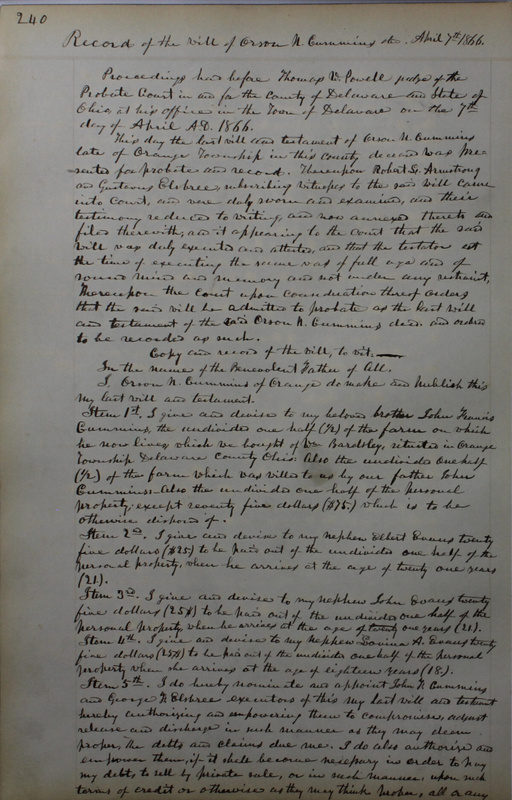 240
Record of the Will of Orson N. Cummins dec. April 7th 1866.
Proceedings had before Thomas W. Powell judge of the
Probate Court in and for the County of Delaware and State of
Ohio, at his office in the Town of Delaware on the 7th
day of April A.D. 1866.
This day the last will and testament of Orson N. Cummins
late of Orange Township in this county deceased was pre
sented for probate and record. Thereupon Robert G. Armstrong
and Gustavus Elsbree subscribing witnesses to the said will came
into Court, and were duly sworn and examined, and their
testimony reduced to writing and now annexed thereto and
filed therewith; and it appearing to the court that the said
will was duly executed and attested, and that the testator at
the time of executing the same was of full age and of
sound mind and memory and not under any restraint,
Thereupon the Court upon consideration thereof orders
that the said will be admitted to probate as the last will
and testament of the said Orson N. Cummins decd. and ordered
to be recorded as such.
Copy and record of the will, to wit:—
In the name of the Benevolent Father of All.
I, Orson N. Cummins of Orange do make and publish this
my last will and testament.
Item 1st, I give and devise to my beloved brother John Francis
Cummins, the undivided one half (½) of the farm on which
he now lives, which we bought of Wm Bardsley, situated in Orange
Township Delaware County Ohio. Also the undivided one half
(½) of the farm which was willed to us by our father John
Cummins. Also the undivided one half of the personal
property, except seventy five dollars ($75.) which is to be
otherwise disposed of.
Item 2d. I give and devise to my nephew Elbert Evans twenty
five dollars ($25) to be paid out of the undivided one half of the
personal property, when he arrives at the age of twenty one years
(21.).
Item 3rd. I give and devise to my nephew John Evans twenty
five dollars (25$) to be paid out of the undivided one half of the
personal property when he arrives at the age of twenty one years (21.)
Item 4th. I give and devise to my nephew Lovina A. Evans twenty
five dollars (25$) to be paid out of the undivided one half of the personal
property when she arrives at the age of eighteen years (18.)
Item 5th. I do hereby nominate and appoint John F. Cummins
and George W. Elsbree executors of this my last will and testament
hereby authorizing and empowering them to compromise, adjust
release and discharge in such manner as they may deem
proper, the debts and claims due me. I do also authorize and
empower them, if it shall become necessary in order to pay
my debts, to sell by private sale, or in such manner, upon such
terms of credit or otherwise as they may think proper, all or any